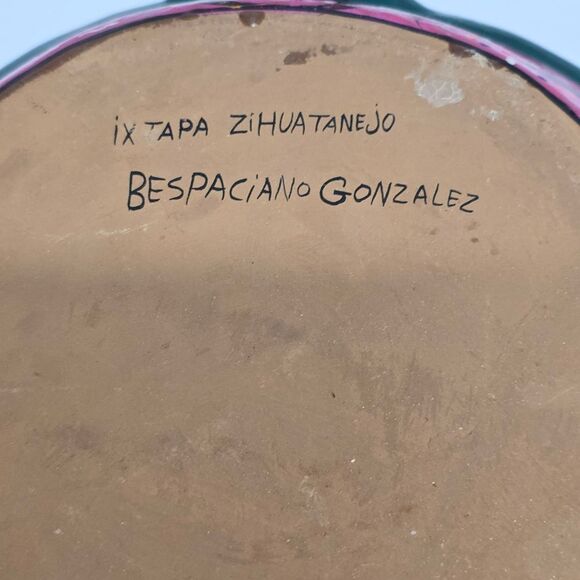 iXTAPA ZiHUATANEJO
BESPACiANO GONZALEZ